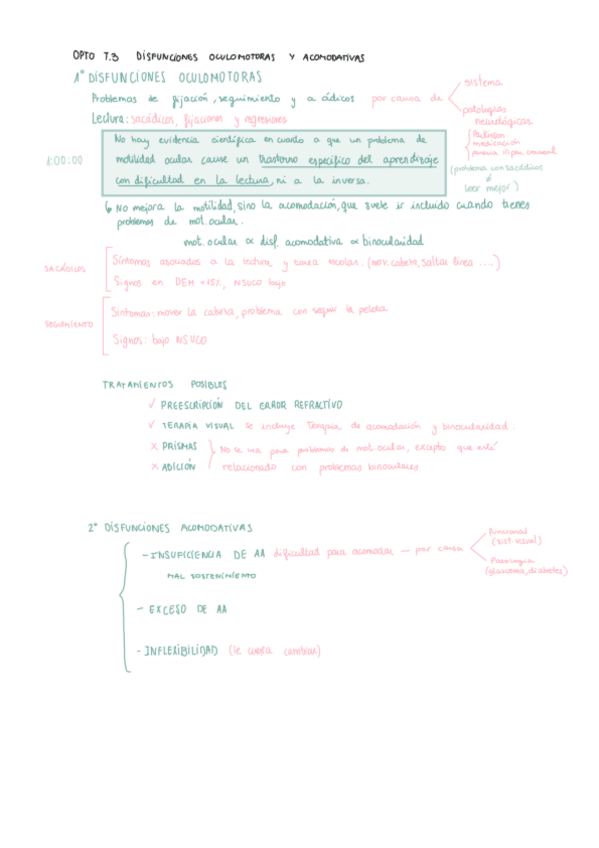 OPTO T.3 DISFUNCIONES OCULOMOTORAS Y ACOMODATIVAS
1º DISFUNCIONES OCULOMOTORAS
Problemas de fijación, seguimiento y s ádicos por causa de
sistema
patologías
neurológicas
Parkinson
medicación
(problema con sacádicos
leer mejor)
Lectura: sacádicos, fijaciones y regresiones
1:00:00
No hay evidencia científica en cuanto a que un problema de
motilidad ocular cause un trastorno específico del aprendizaje
con dificultad en la lectura, ni a la inversa.
↳ No mejora la motilidad, sino la acomodación, que suele ir incluido cuando tienes
problemas de mot. ocular.
mot. ocular ∝ disf. acomodativa ∝ binocularidad
SACÁDICOS
Síntomas asociados a la lectura y tarea escolar. (mov. cabeza, saltar línea ....)
Signos en DEM <15%, NSUCO bajo
SEGUIMIENTO
Síntomas: mover la cabeza, problema con seguir la pelota
Signos: bajo NSUCO
TRATAMIENTOS POSIBLES
✓ PREESCRIPCIÓN DEL ERROR REFRACTIVO
✓ TERAPIA VISUAL se incluye Terapia de acomodación y binocularidad.
× PRISMAS
× ADICIÓN
No se usa para problemas de mot. ocular, excepto que esté
relacionado con problemas binoculares
2º DISFUNCIONES ACOMODATIVAS
- INSUFICIENCIA DE AA dificultad para acomodar — por causa
Funcional
(sist. visual)
Patología
(glaucoma, diabetes)
MAL SOSTENIMIENTO
- EXCESO DE AA
- INFLEXIBILIDAD (le cuesta cambiar)